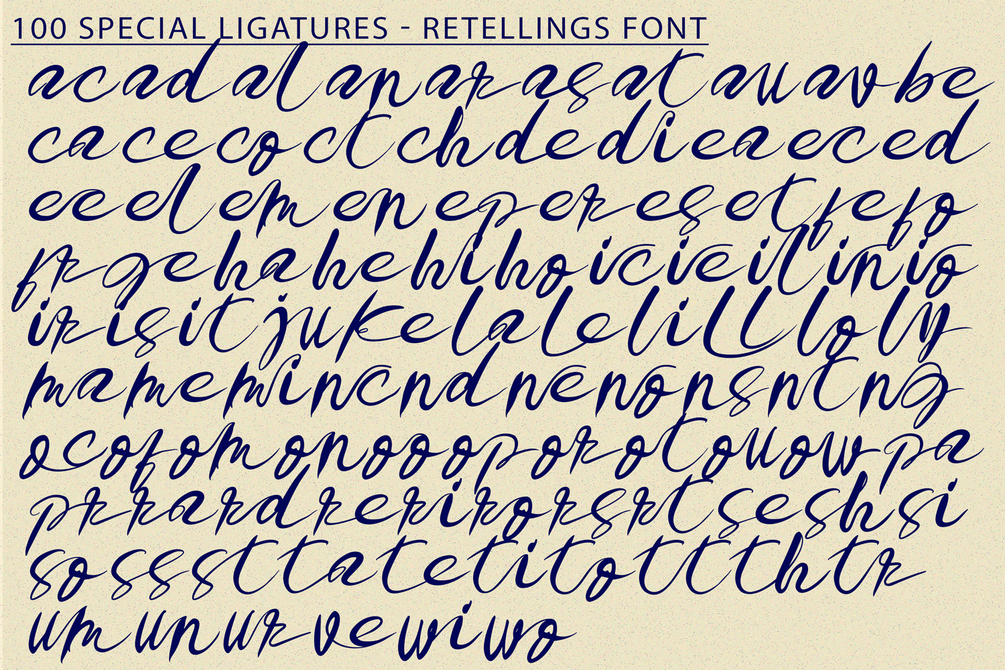 100 SPECIAL LIGATURES - RETELLINGS FONT
ac ad al an ar as at au av be
ca ce co ct ch de di ea ec ed
ee el em en ep er es et fe fo
fr ge ha he hi ho ic ie il in io
ir is it ju ke la le li ll lo ly
ma me mi nc nd ne no ns nt ng
oc of om on oo op or ot ou ow pa
pr ra rd re ri ro rs rt se sh si
so ss st ta te ti to tt th tr
um un ur ve wi wo